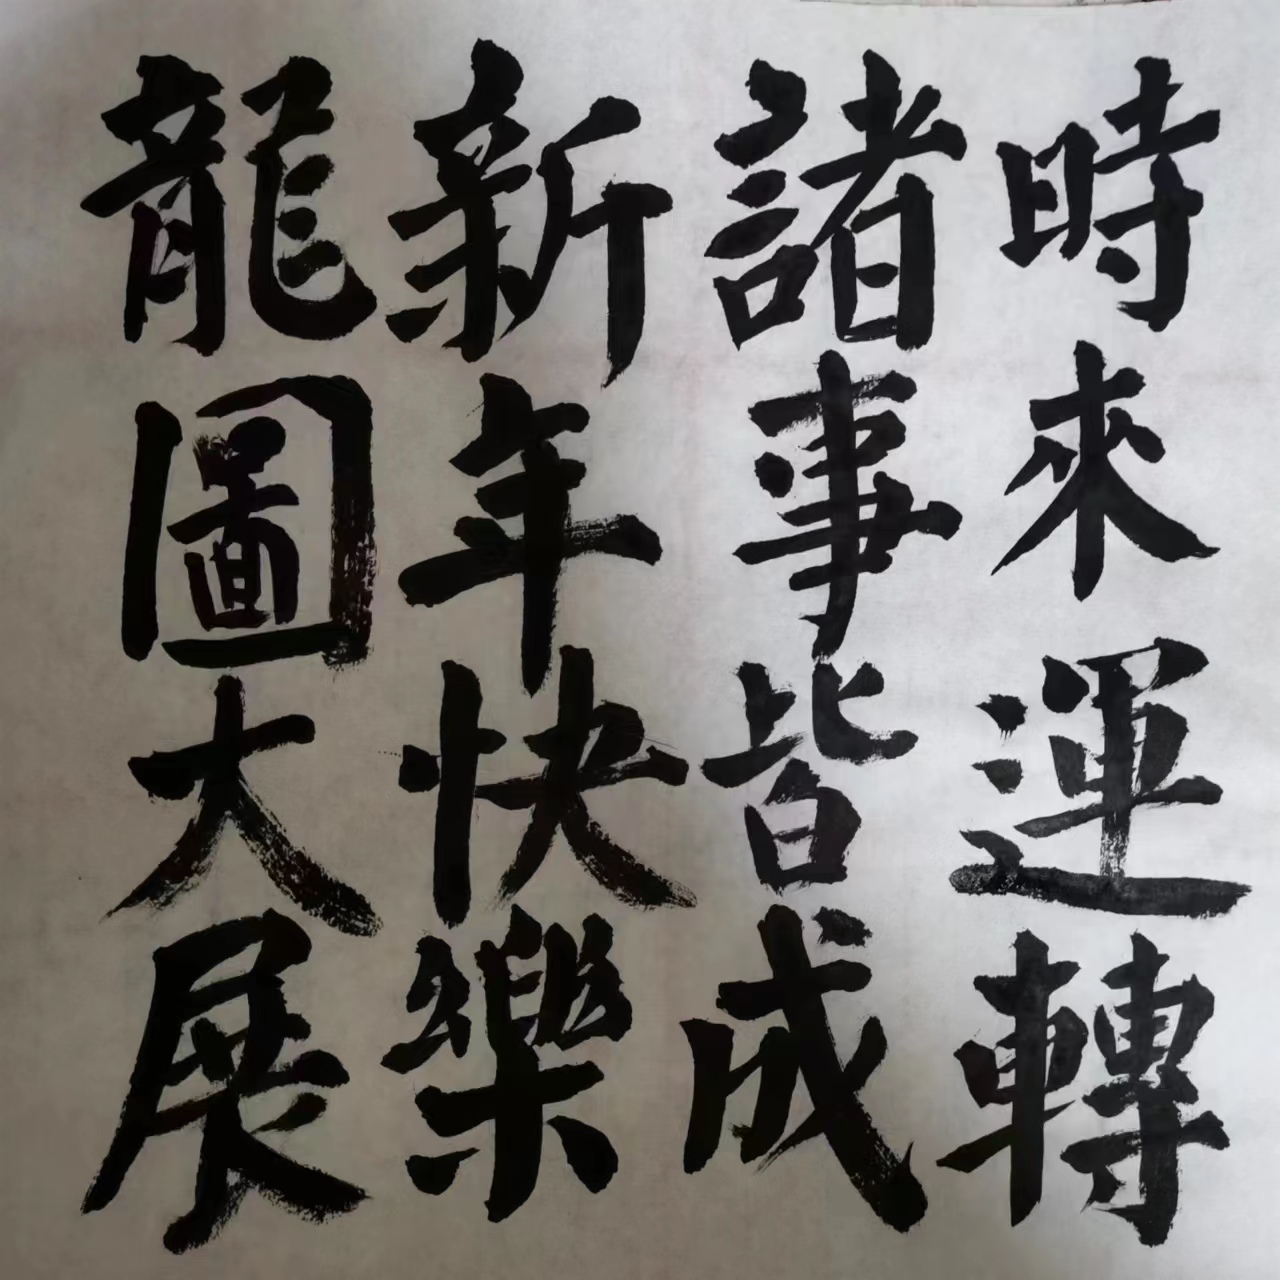 時來運轉
諸事皆成
新年快樂
龍圖大展